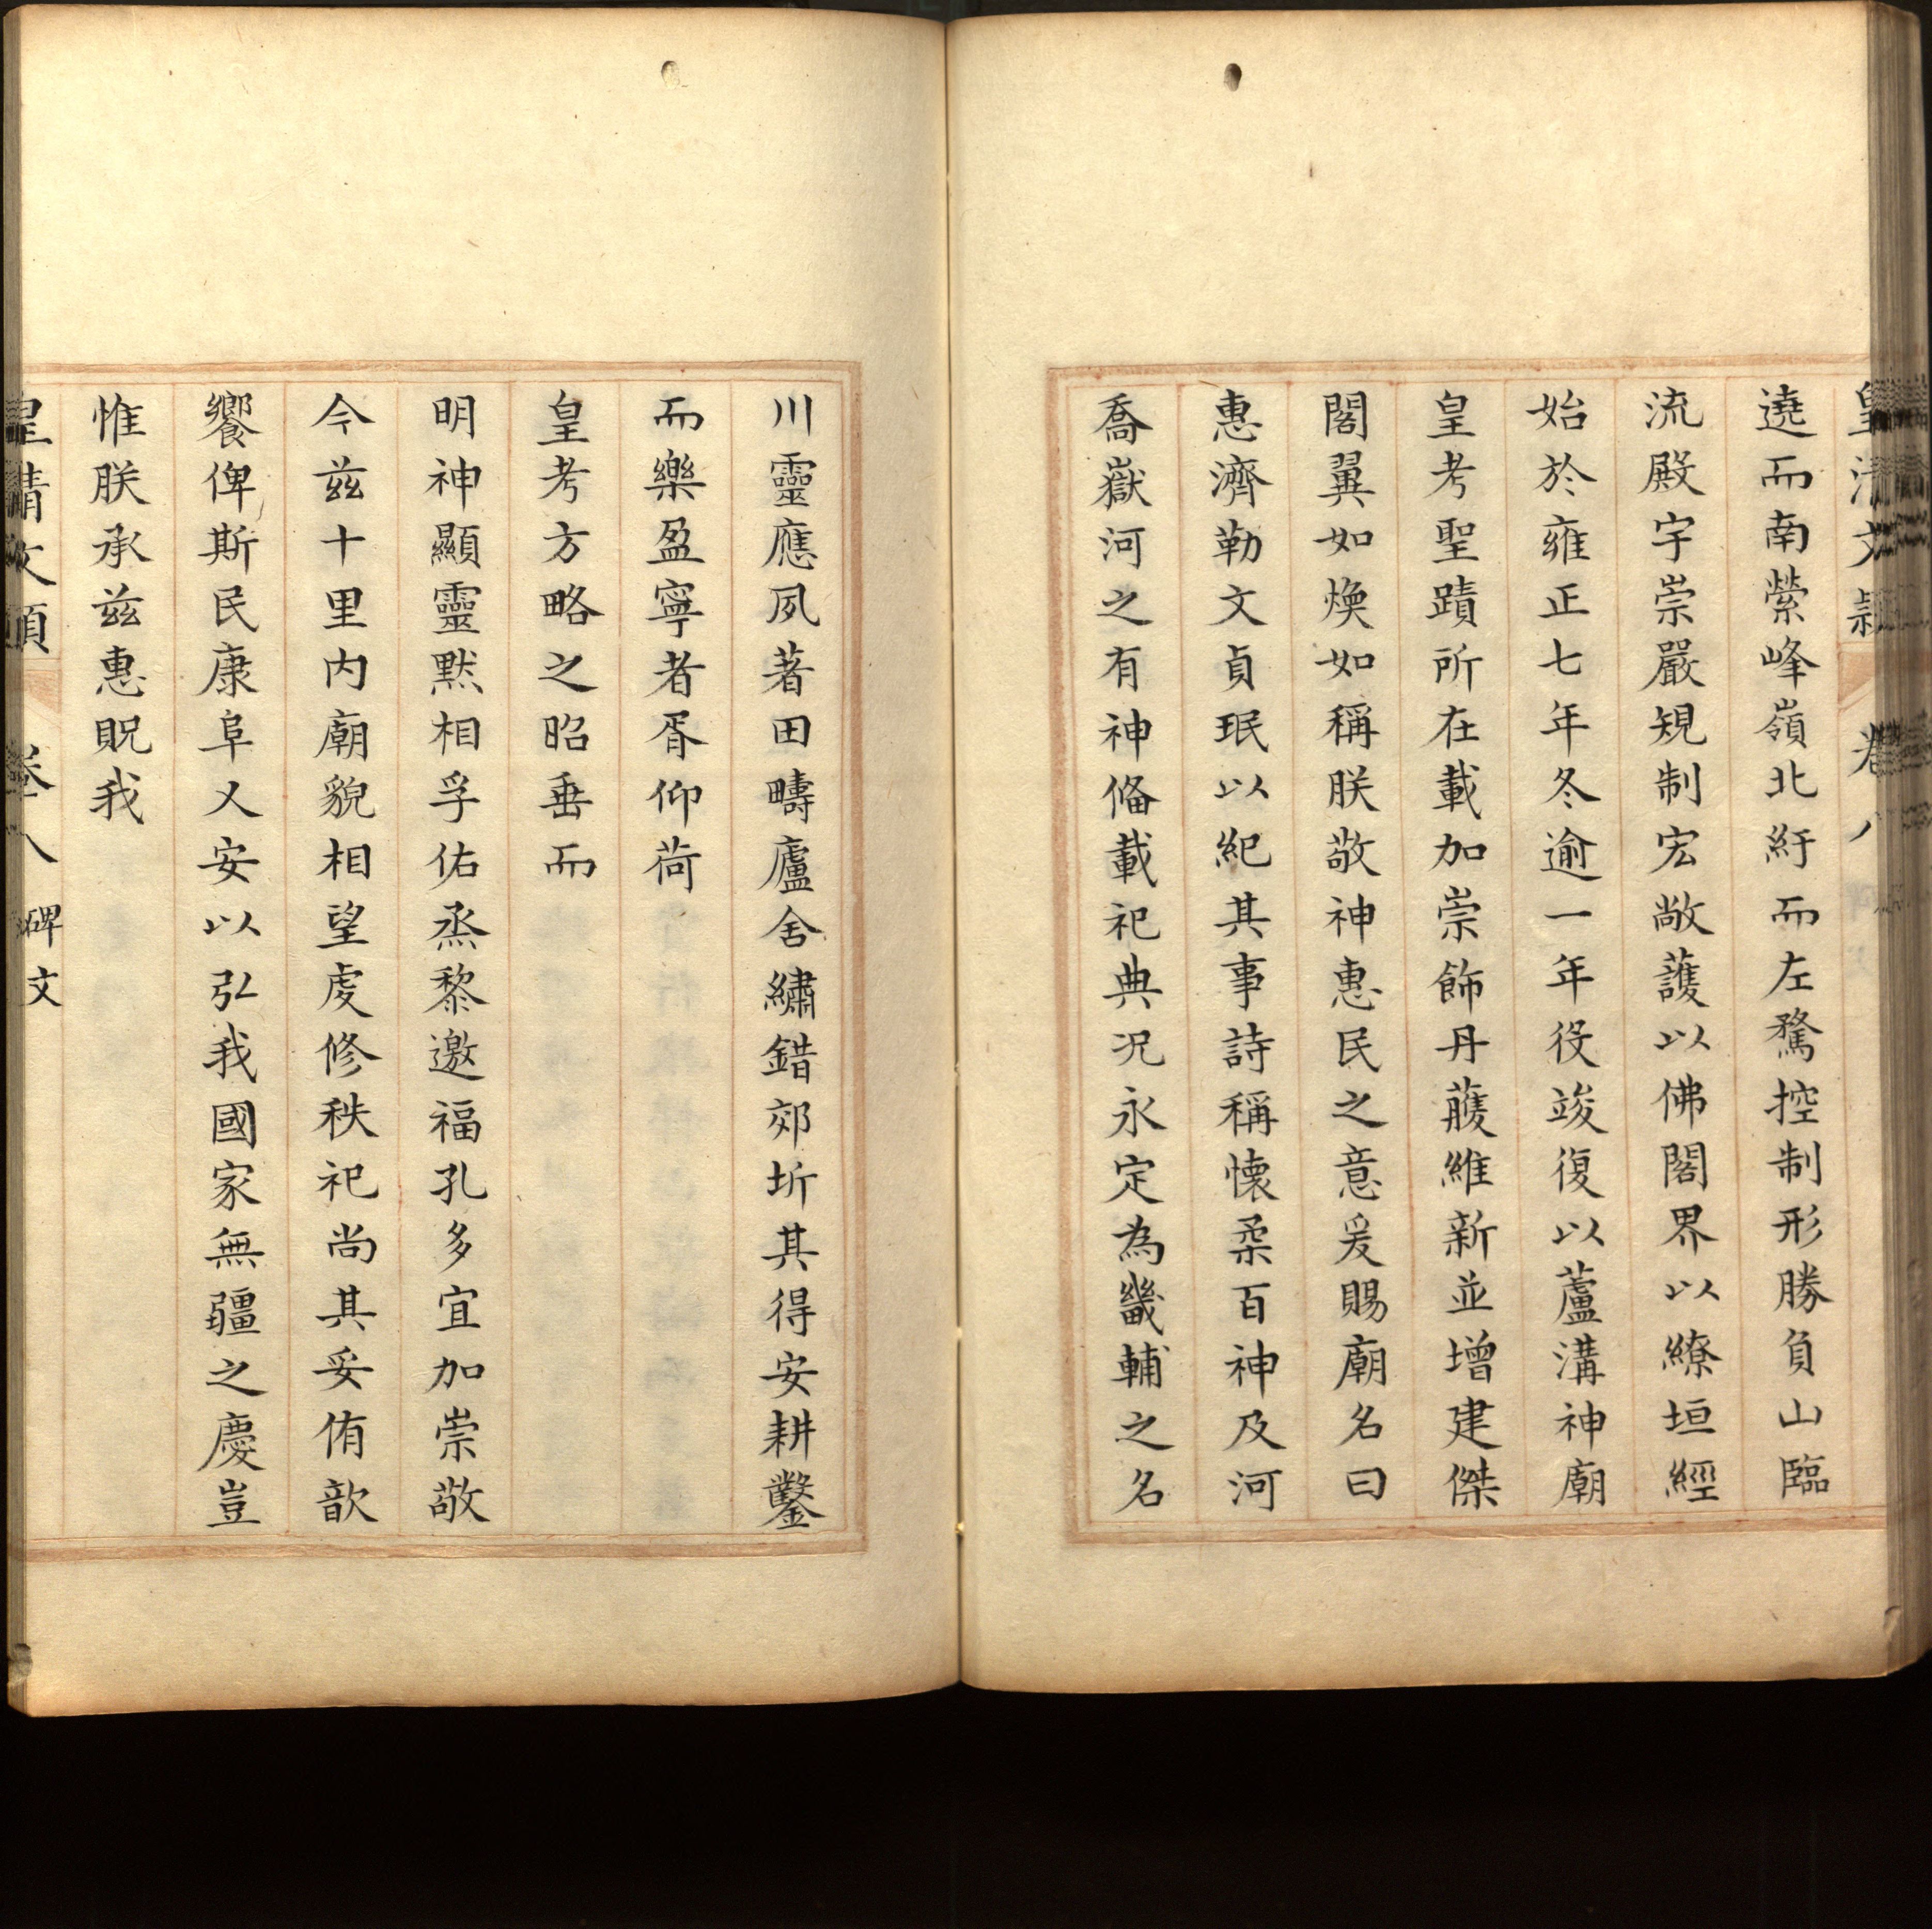 皇清文穎 卷八
遶而南縈峰嶺北紆而左騖控制形勝負山臨
流殿宇崇嚴規制宏敞護以佛閣界以繚垣經
始於雍正七年冬逾一年役竣復以蘆溝神廟
皇考聖蹟所在載加崇飾丹雘維新並增建傑
閣翼如煥如稱朕敬神惠民之意爰賜廟名曰
惠濟勒文貞珉以紀其事詩稱懷柔百神及河
喬嶽河之有神俻載祀典况永定為畿輔之名
川靈應夙著田疇廬舍繡錯郊圻其得安耕鑿
而樂盈寧者胥仰荷
皇考方略之昭垂而
明神顯靈默相孚佑烝黎邀福孔多宜加崇敬
今兹十里内廟貌相望虔修秩祀尚其妥侑歆
饗俾斯民康阜乂安以弘我國家無疆之慶豈
惟朕承兹惠貺我
皇清文穎 卷八 碑文